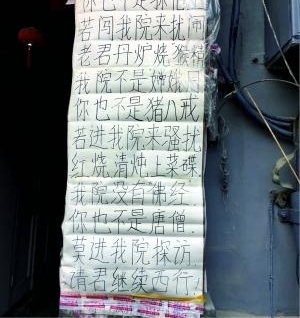 你也不是
若闯我院来扰闹
老君丹炉烧猴精
我院不是嫦娥月
你也不是猪八戒
若进我院来骚扰
红烧清炖上菜碟.
我院没有佛经
你也不是唐僧.
莫进我院探访
请君继续西行!